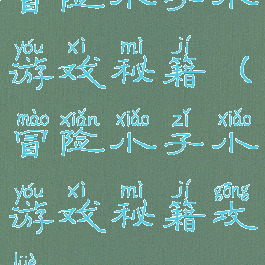 冒险小子小
yóu xì mì jí
游戏秘籍(
mào xiǎn xiǎo zǐ xiǎo
冒险小子小
yóu xì mì jí gōng
游戏秘籍攻
lüè